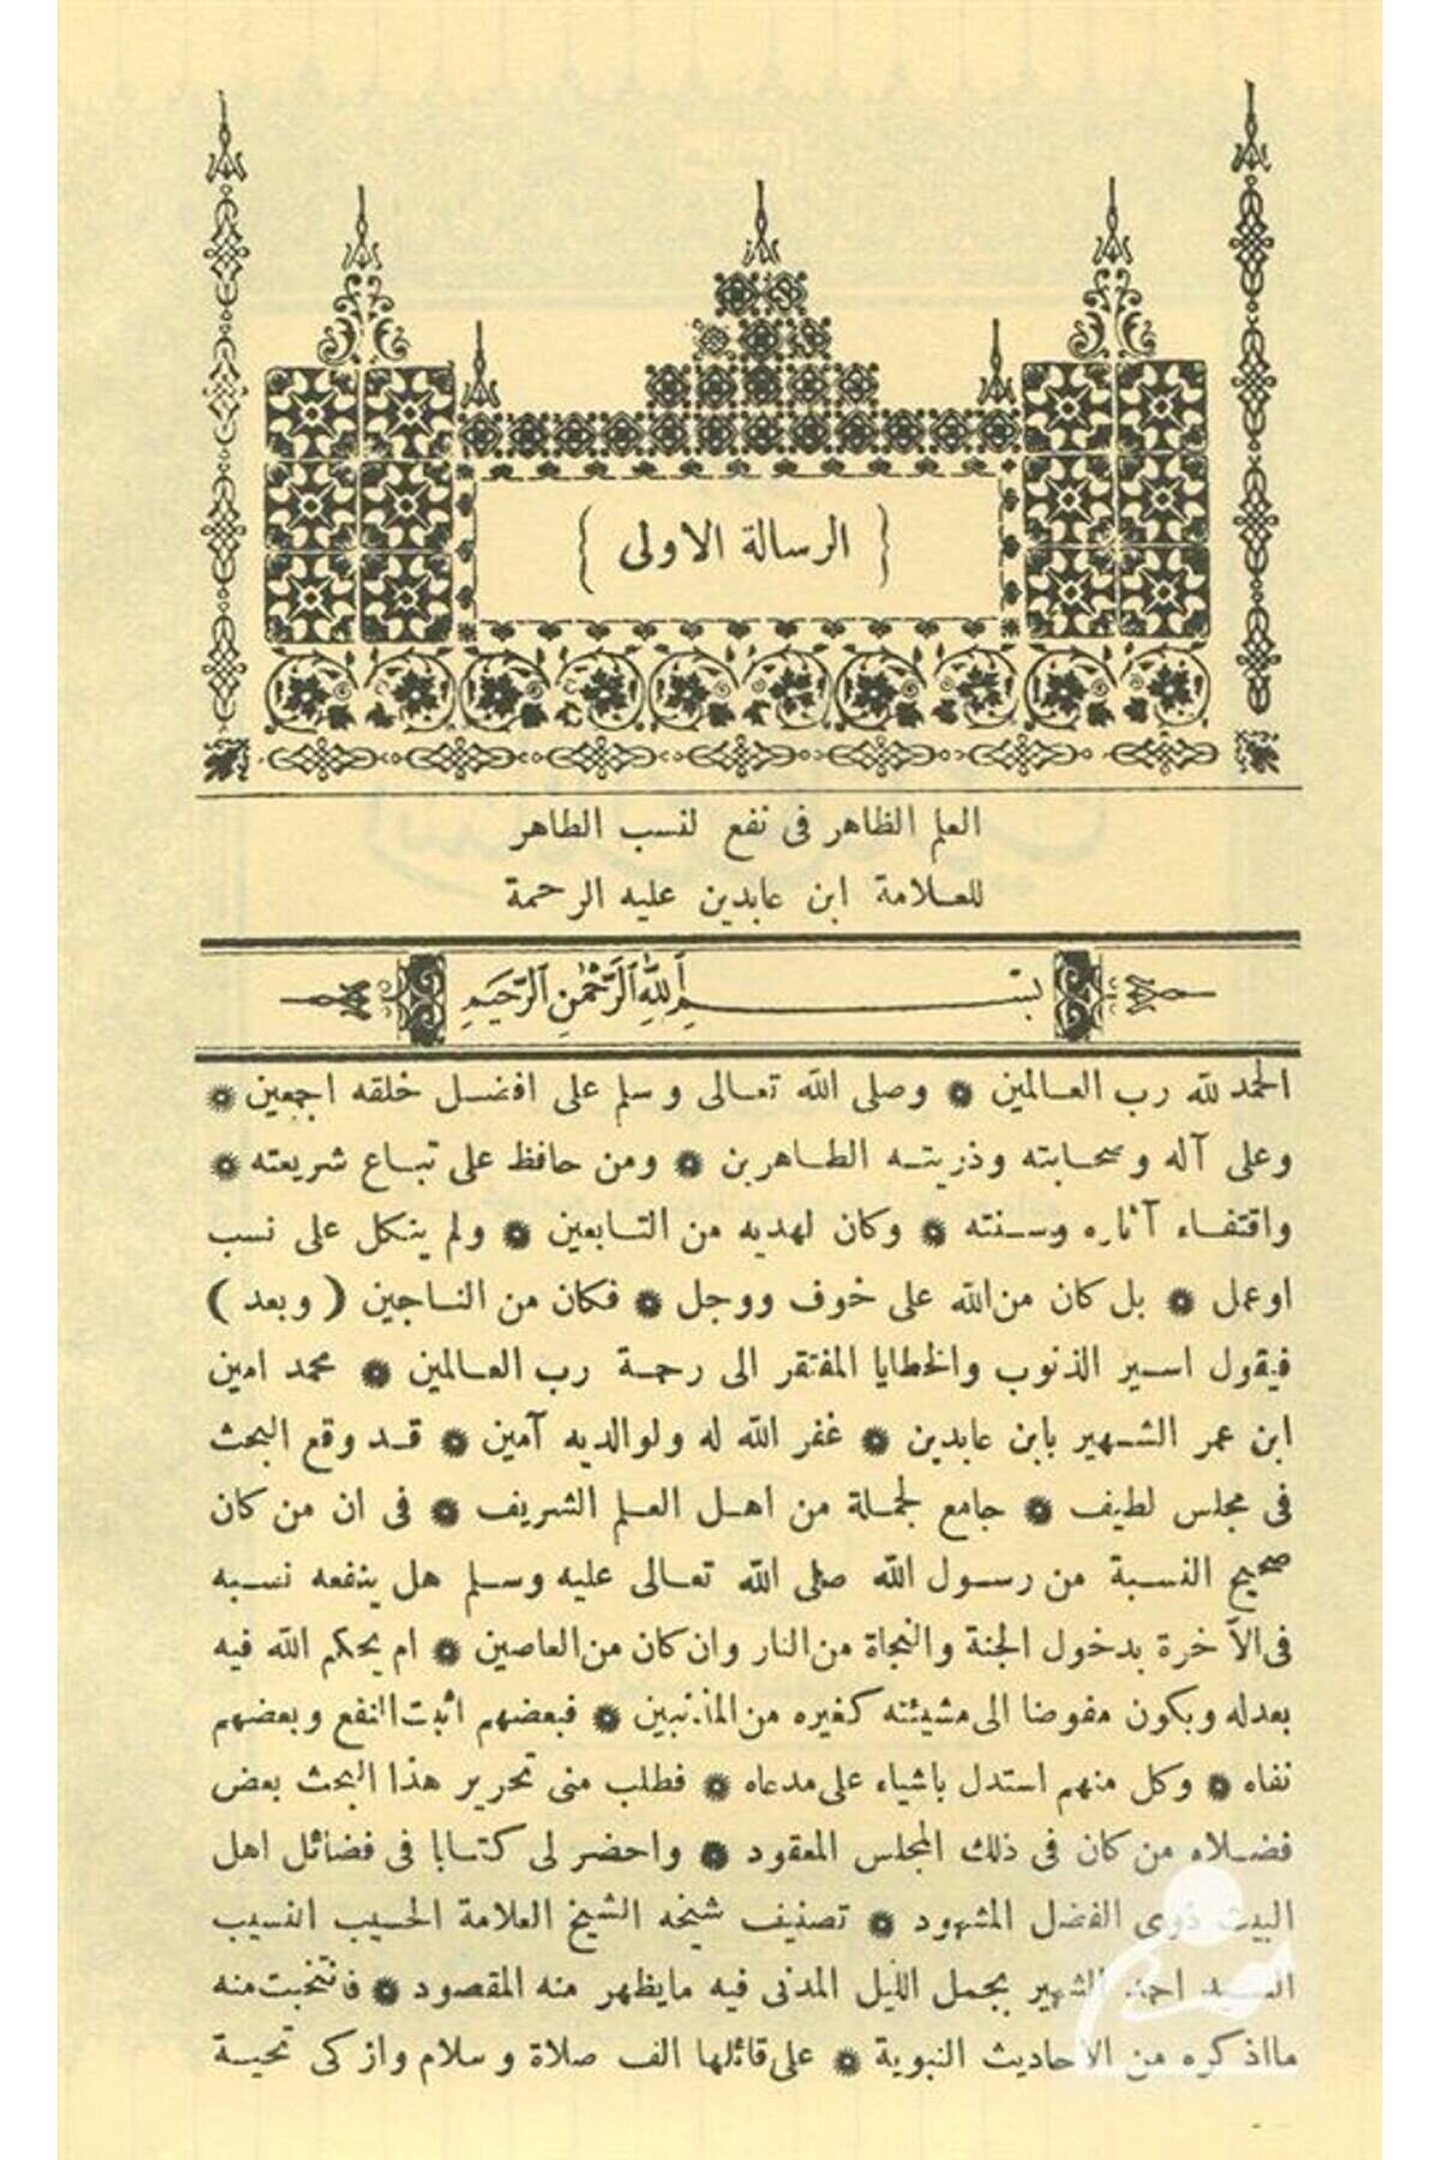 ﴿ الرسالة الاولى ﴾
العلم الظاهر فى نفع لنسب الطاهر
للعلامة ابن عابدين عليه الرحمة
بسم الله الرحمن الرحيم
الحمد لله رب العالمين ۞ وصلى الله تعالى وسلم على افضل خلقه اجمعين ۞
وعلى آله وصحابته وذريته الطاهرين ۞ ومن حافظ على تباع شريعته ۞
واقتفاء آثاره وسنته ۞ وكان لهديه من التابعين ۞ ولم يتكل على نسب
او عمل ۞ بل كان من الله على خوف ووجل ۞ فكان من الناجين ( وبعد )
فيقول اسير الذنوب والخطايا المفتقر الى رحمة رب العالمين ۞ محمد امين
ابن عمر الشهير بابن عابدين ۞ غفر الله له ولوالديه آمين ۞ قد وقع البحث
فى مجلس لطيف ۞ جامع لجملة من اهل العلم الشريف ۞ فى ان من كان
صحيح النسبة من رسول الله صلى الله تعالى عليه وسلم هل ينفعه نسبه
فى الآخرة بدخول الجنة والنجاة من النار وان كان من العاصين ۞ ام يحكم الله فيه
بعدله ويكون مفوضا الى مشيئته كغيره من المذنبين ۞ فبعضهم اثبت النفع وبعضهم
نفاه ۞ وكل منهم استدل باشياء على مدعاه ۞ فطلب منى تحرير هذا البحث بعض
فضلاء من كان فى ذلك المجلس المعقود ۞ واحضر لى كتابا فى فضائل اهل
البيت ذوى الفضل المشهود ۞ تصنيف شيخه الشيخ العلامة الحسيب النسيب
السيد احمد الشهير بجمل الليل المدنى فيه مايظهر منه المقصود ۞ فانتخبت منه
مااذكره من الاحاديث النبوية ۞ على قائلها الف صلاة وسلام وازكى تحية